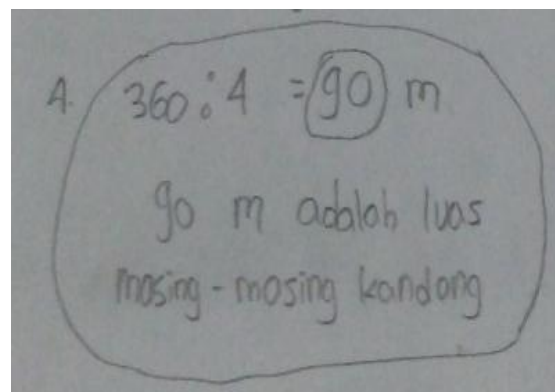 A. 360 : 4 = 90 m
90 m adalah luas
masing - masing kandang